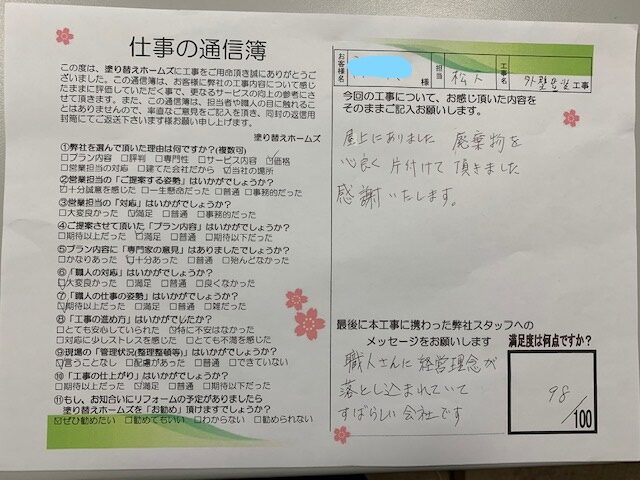 仕事の通信簿
この度は、塗り替えホームズに工事をご用命頂き誠にありがとうご
ざいました。この通信簿は、お客様に弊社の工事内容について感じ
たままに評価していただく事で、更なるサービスの向上の参考にさ
せて頂きます。また、この通信簿は、担当者や職人の目に触れるこ
とはありませんので、率直なご意見をご記入を頂き、同封の返信用
封筒にてご返送下さいます様お願い申し上げます。
塗り替えホームズ
①弊社を選んで頂いた理由は何ですか?(複数可)
□プラン内容 □評判 □専門性 □サービス内容 ☑価格
□営業担当の対応 □建てた会社だから ☑当社の場所
②営業担当の「ご提案する姿勢」はいかがでしょうか?
☑十分誠意を感じた □一生懸命だった □普通 □事務的だった
③営業担当の「対応」はいかがでしょうか?
□大変良かった ☑満足 □普通 □事務的だった
④ご提案させて頂いた「プラン内容」はいかがでしょうか?
□期待以上だった ☑満足 □普通 □期待以下だった
⑤プラン内容に「専門家の意見」はありましたでしょうか?
□かなりあった ☑十分あった □普通 □殆んどなかった
⑥「職人の対応」はいかがでしょうか?
☑大変良かった □満足 □普通 □良くなかった
⑦「職人の仕事の姿勢」はいかがでしょうか?
☑期待以上だった □満足 □普通 □雑だった
⑧「工事の進め方」はいかがでしたか?
□とても安心していられた ☑特に不安はなかった
□対応に少しストレスを感じた □とても不満を感じた
⑨現場の「管理状況(整理整頓等)」はいかがでしょうか?
☑言うことなし □配慮があった □普通 □できていない
⑩「工事の仕上がり」はいかがでしょうか?
□期待以上だった ☑満足 □普通 □期待以下だった
⑪もし、お知合いにリフォームの予定がありましたら
塗り替えホームズを「お勧め」頂けますでしょうか?
☑ぜひ勧めたい □勧めてもいい □わからない □勧められない
お客様名 様 担当 松下 工事名 外壁塗装工事
今回の工事について、お感じ頂いた内容を
そのままご記入お願いします。
屋上にありました 廃棄物を
心良く 片付けて 頂きました
感謝いたします。
最後に本工事に携わった弊社スタッフへの
メッセージをお願いします
職人さんに 経営理念が
落とし込まれていて
すばらしい会社です
満足度は何点ですか?
98
/100